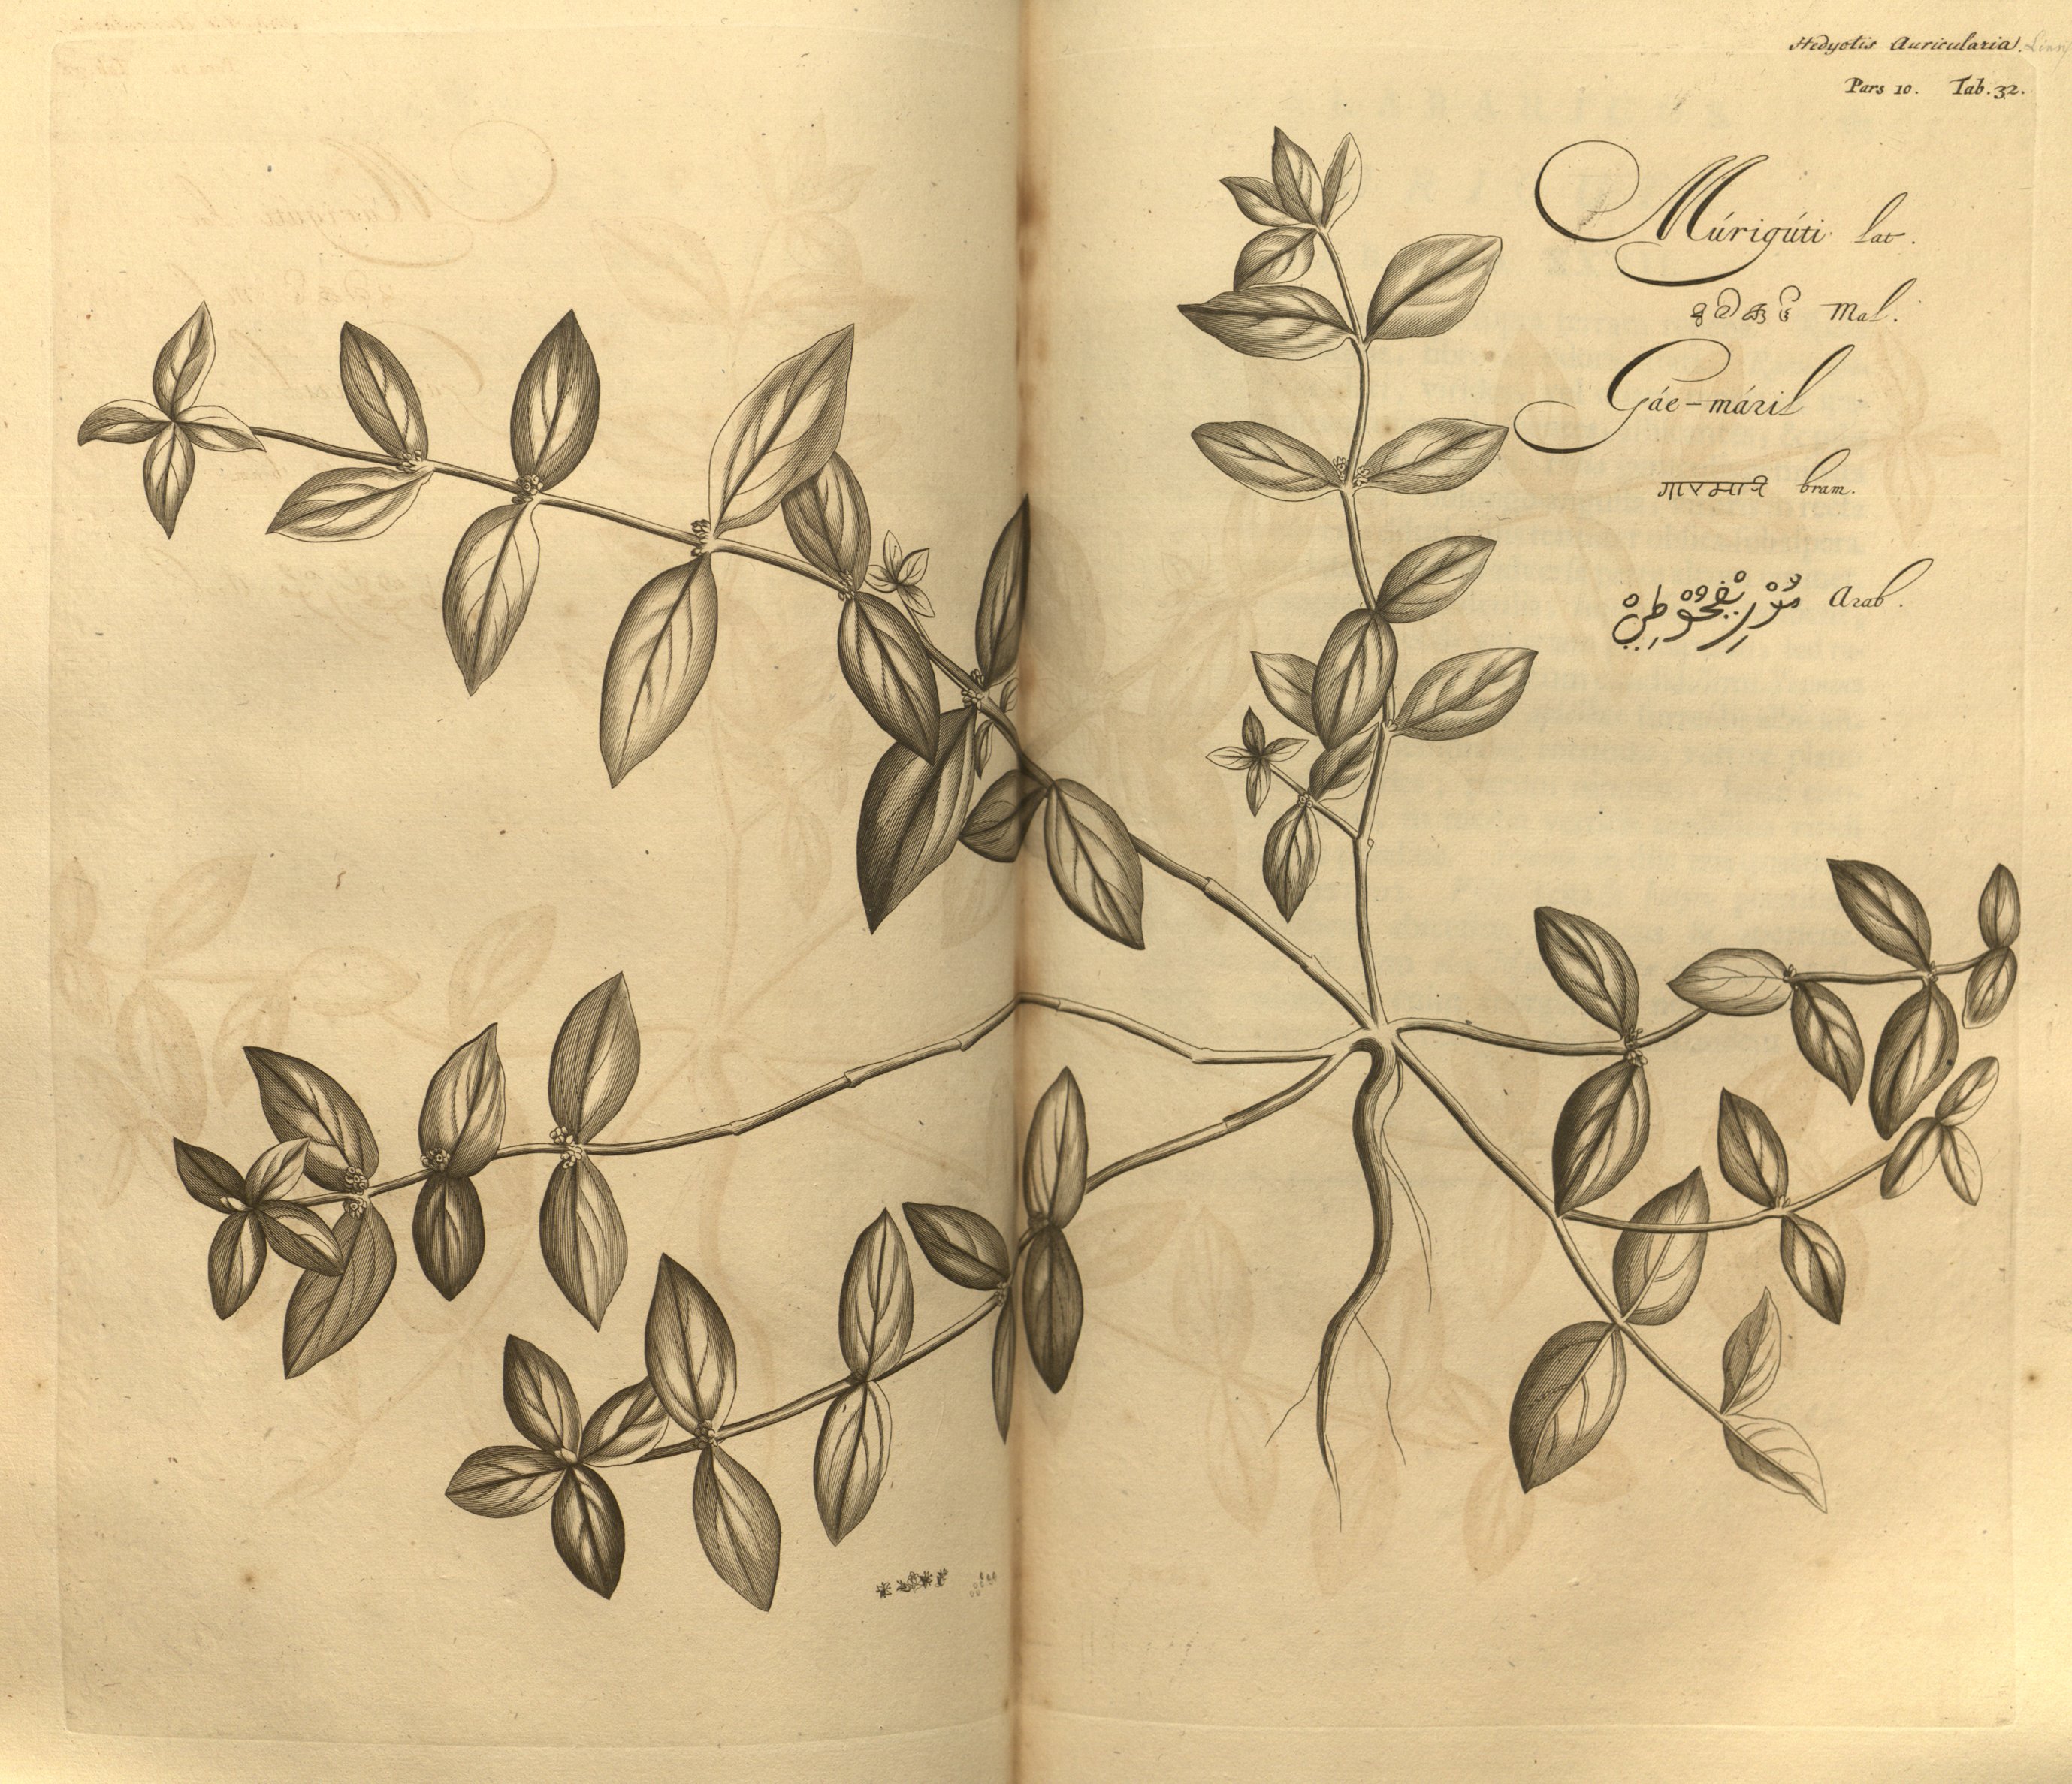 Hedyotis Auricularia. Linn
Pars 10. Tab. 32.
Múrigúti lat.
Mal.
Gáe-máril
गारमारि bram.
Arab.